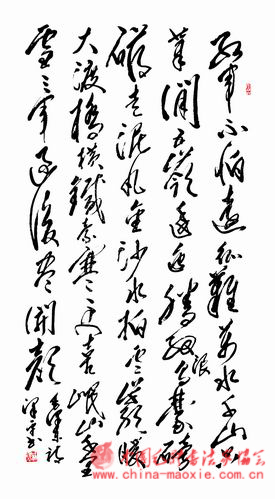 红军不怕遠征難万水千山只
等闲五嶺逶迤騰细浪乌蒙磅
礴走泥丸金沙水拍雲崖暖
大渡橋横鐵索寒更喜岷山千里
雪三军過後尽開颜
www.china-maoxie.com